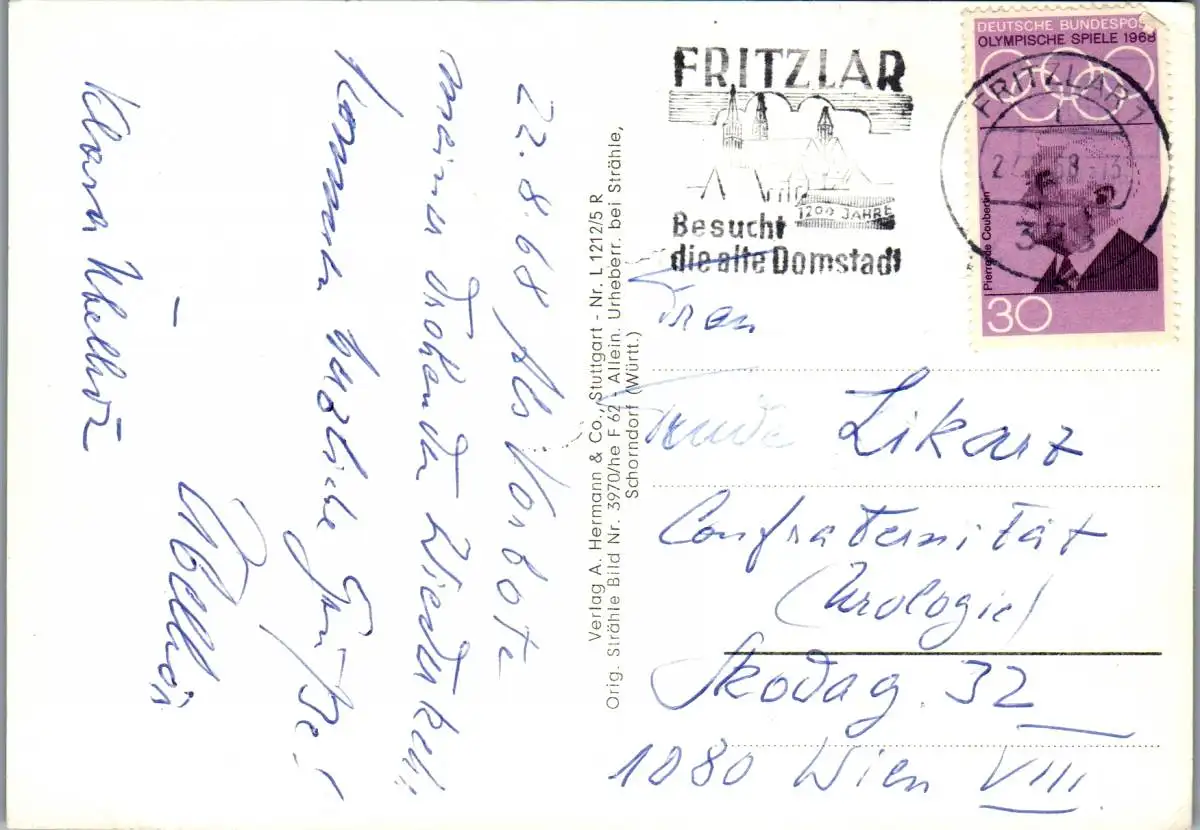 22.8.68 Als Vorbote
meiner drohenden Wiederkehr
Kommen herzliche Grüße!
–
Klara
FRITZLAR
1200 JAHRE
Besucht
die alte Domstadt
DEUTSCHE BUNDESPOST
OLYMPISCHE SPIELE 1968
Pierre de Coubertin
30
FRITZLAR 1
Verlag A. Hermann & Co., Stuttgart - Nr. L 1212/5 R
Orig. Strähle Bild Nr. 3970/he F 62 - Allein. Urheberr. bei Strähle,
Schorndorf (Württ.)
Frau
Likarz
Confraternität
(Urologie)
Skodag. 32
1080 Wien VIII.